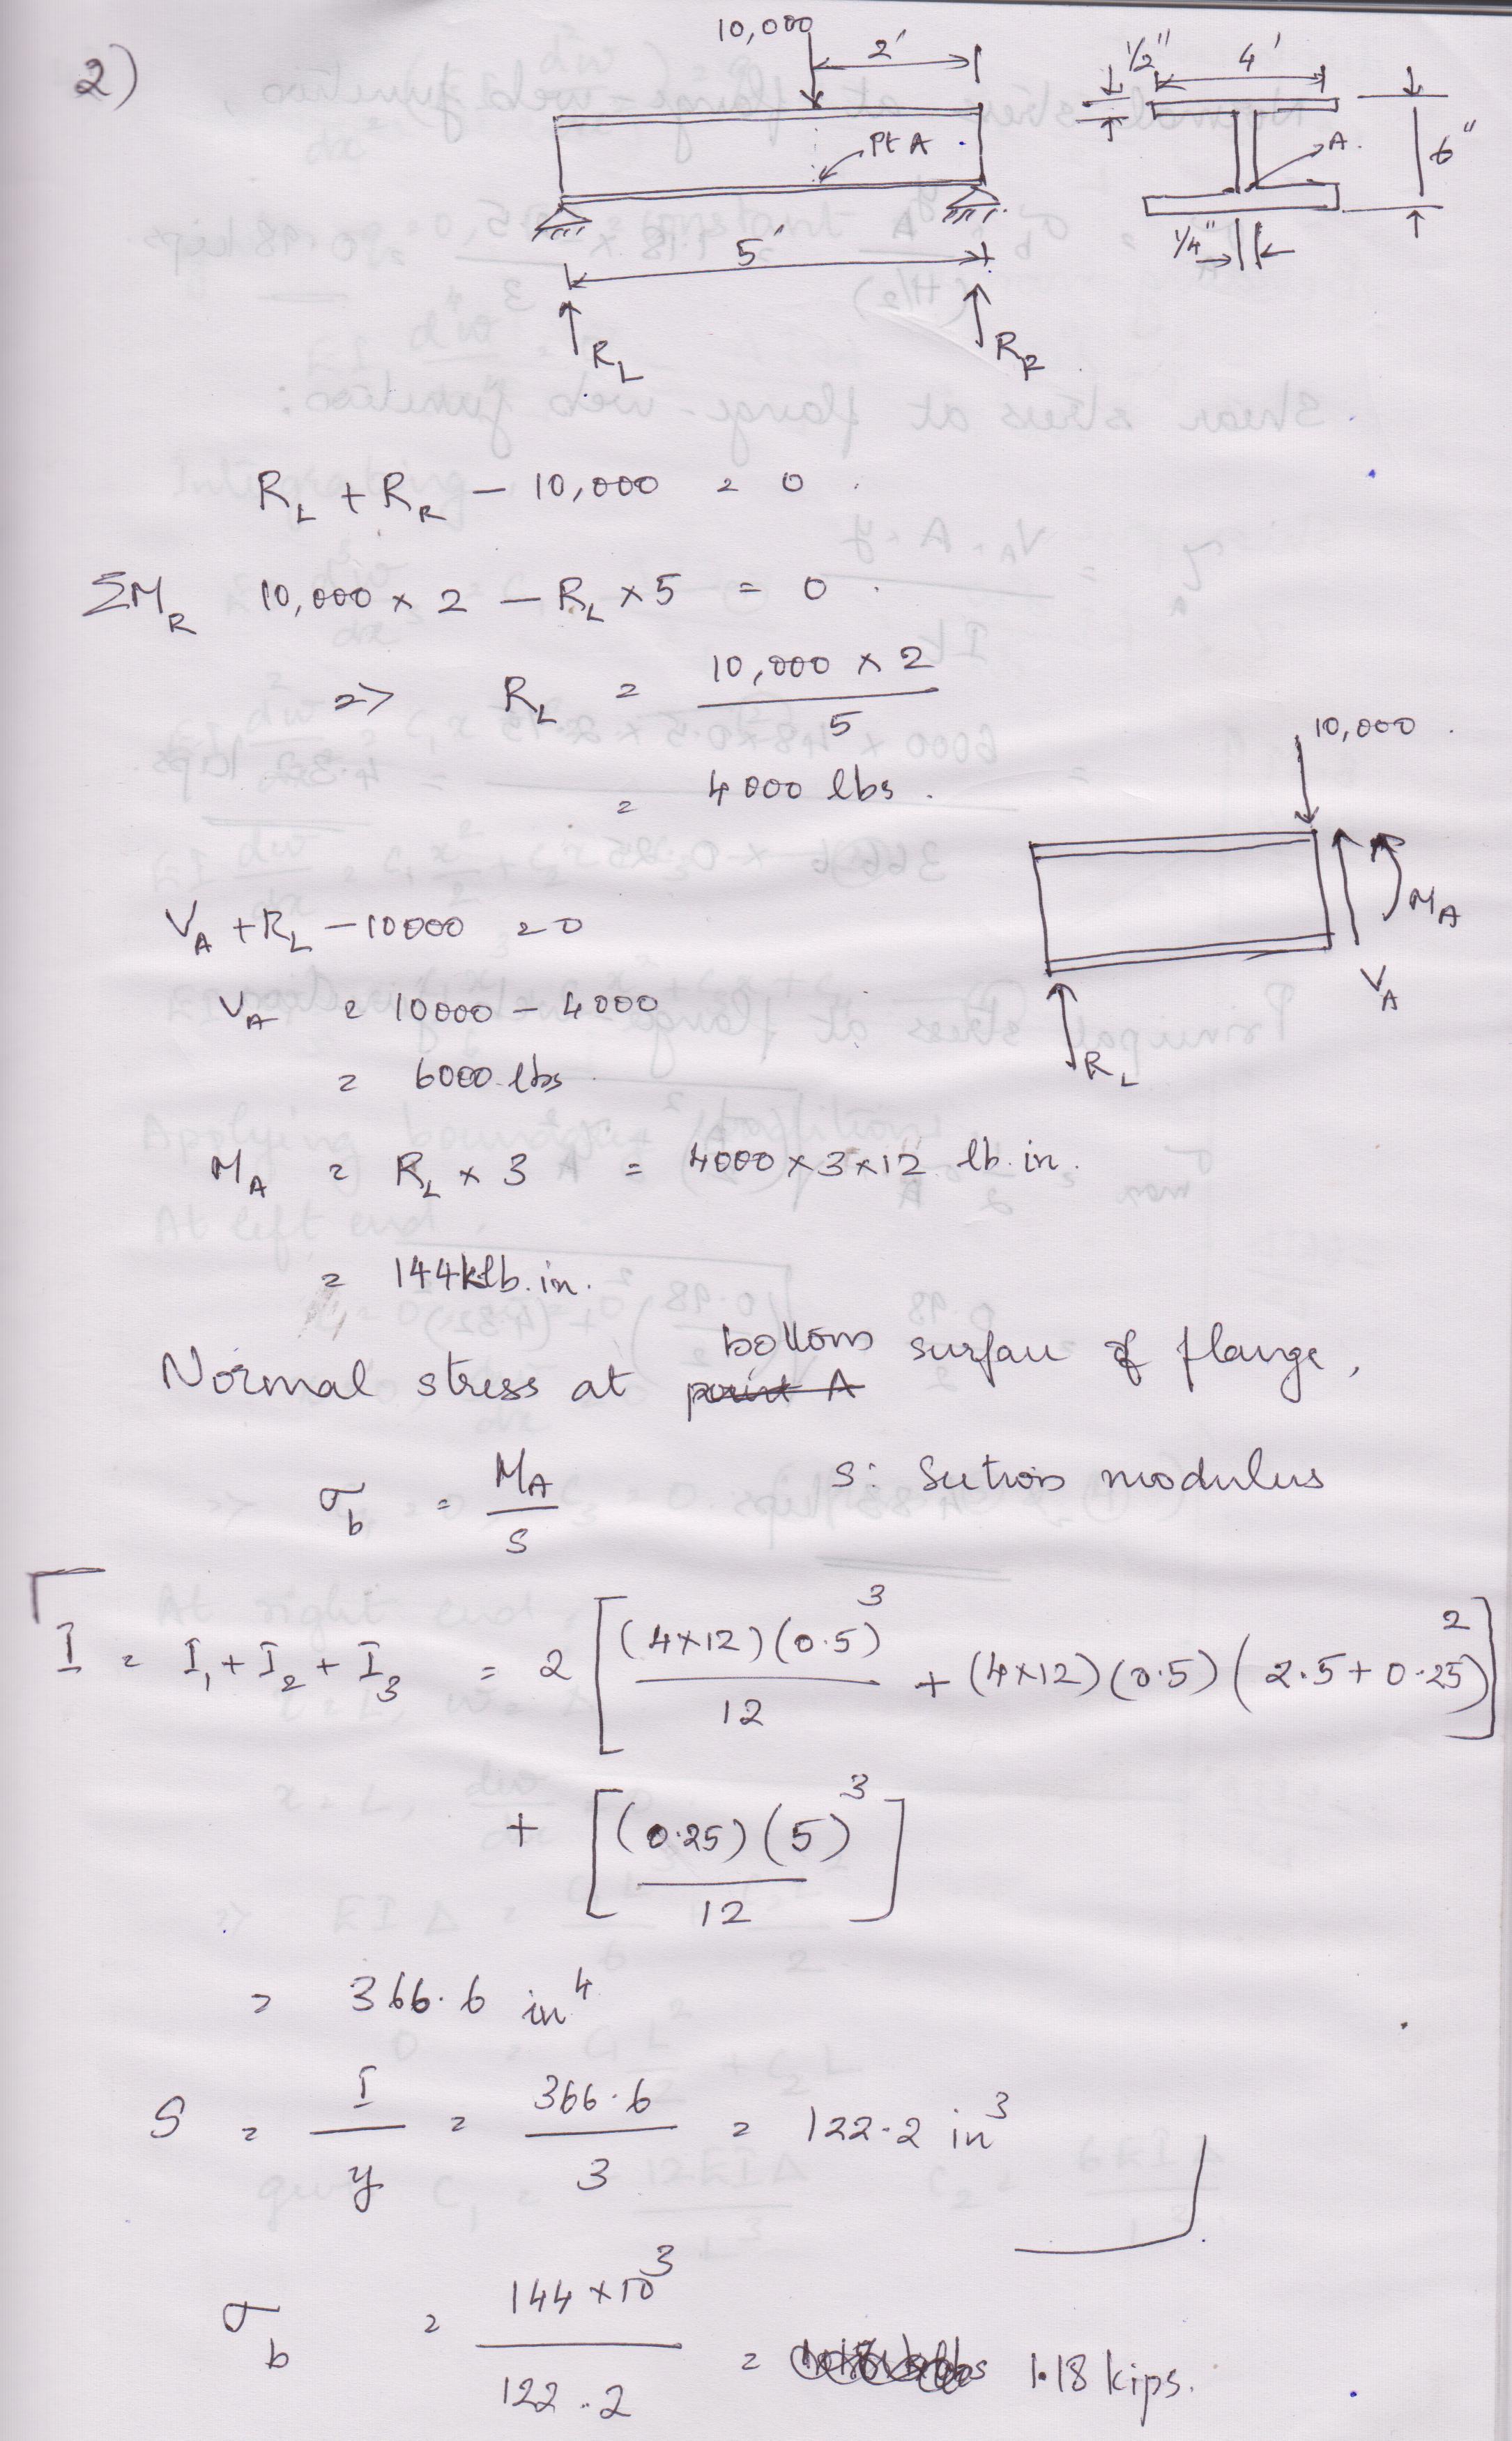 2)
10,000
2'
1/2"
4'
Pt A
A.
6"
5'
1/4"
R_L
R_R
R_L + R_R - 10,000 = 0.
ΣM_R 10,000 × 2 - R_L × 5 = 0.
=> R_L = 10,000 × 2 / 5
= 4000 lbs.
10,000.
V_A + R_L - 10000 = 0
M_A
V_A = 10000 - 4000
V_A
R_L
= 6000 lbs.
M_A = R_L × 3 = 4000 × 3 × 12 lb.in.
= 144klb.in.
Normal stress at bottom surface of flange,
point A
σ_b = M_A / S
S: Section modulus
I = I_1 + I_2 + I_3 = 2 [ (4×12)(0.5)^3 / 12 + (4×12)(0.5)(2.5+0.25)^2 ]
+ [ (0.25)(5)^3 / 12 ]
= 366.6 in^4
S = I / y = 366.6 / 3 = 122.2 in^3
σ_b = 144 × 10^3 / 122.2 = 1.18 kips.